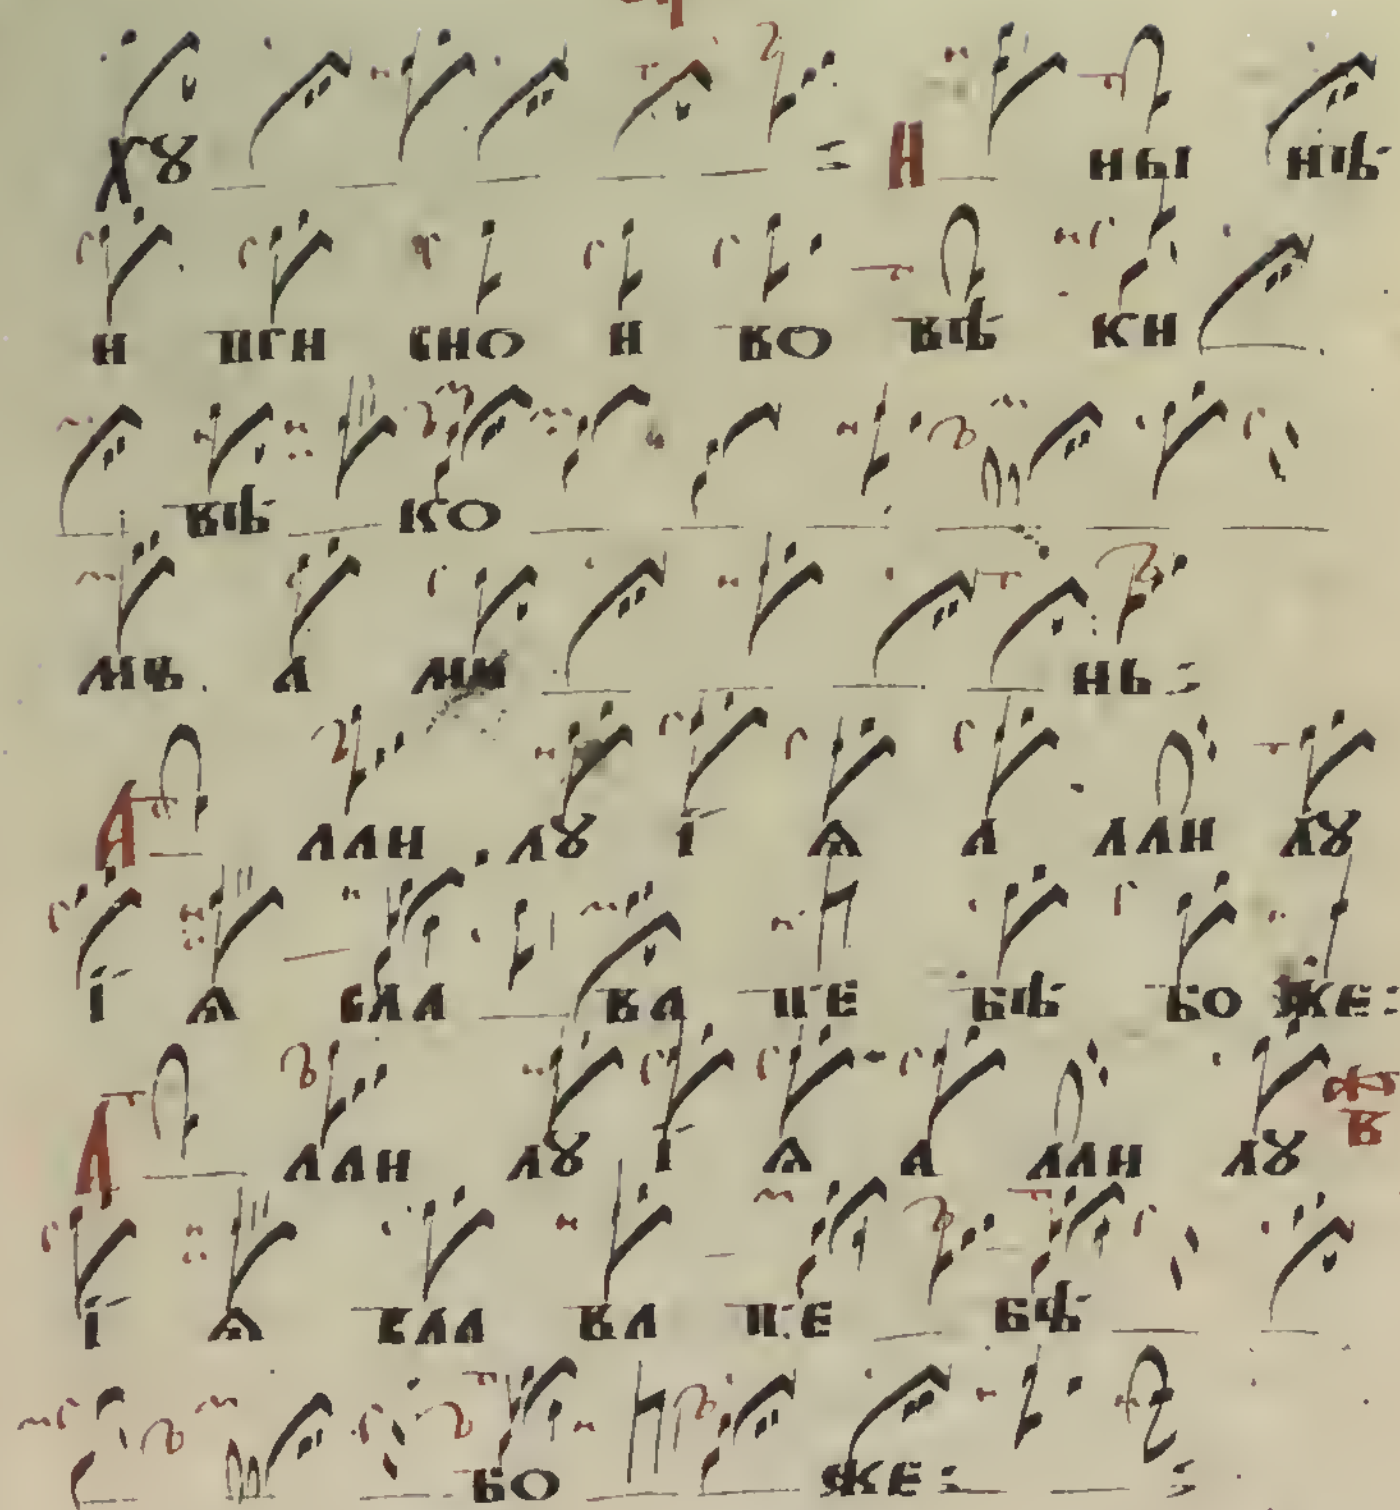 хꙋ = И ны нѣ
и пги сно и во вѣ ки
вѣ ко
мъ. а ми нь =
А лли лꙋ і ѧ а лли лꙋ
і ѧ сла ва пе бѣ бо же :
А лли лꙋ і ѧ а лли лꙋ в
і ѧ сла ва пе бѣ
бо же :